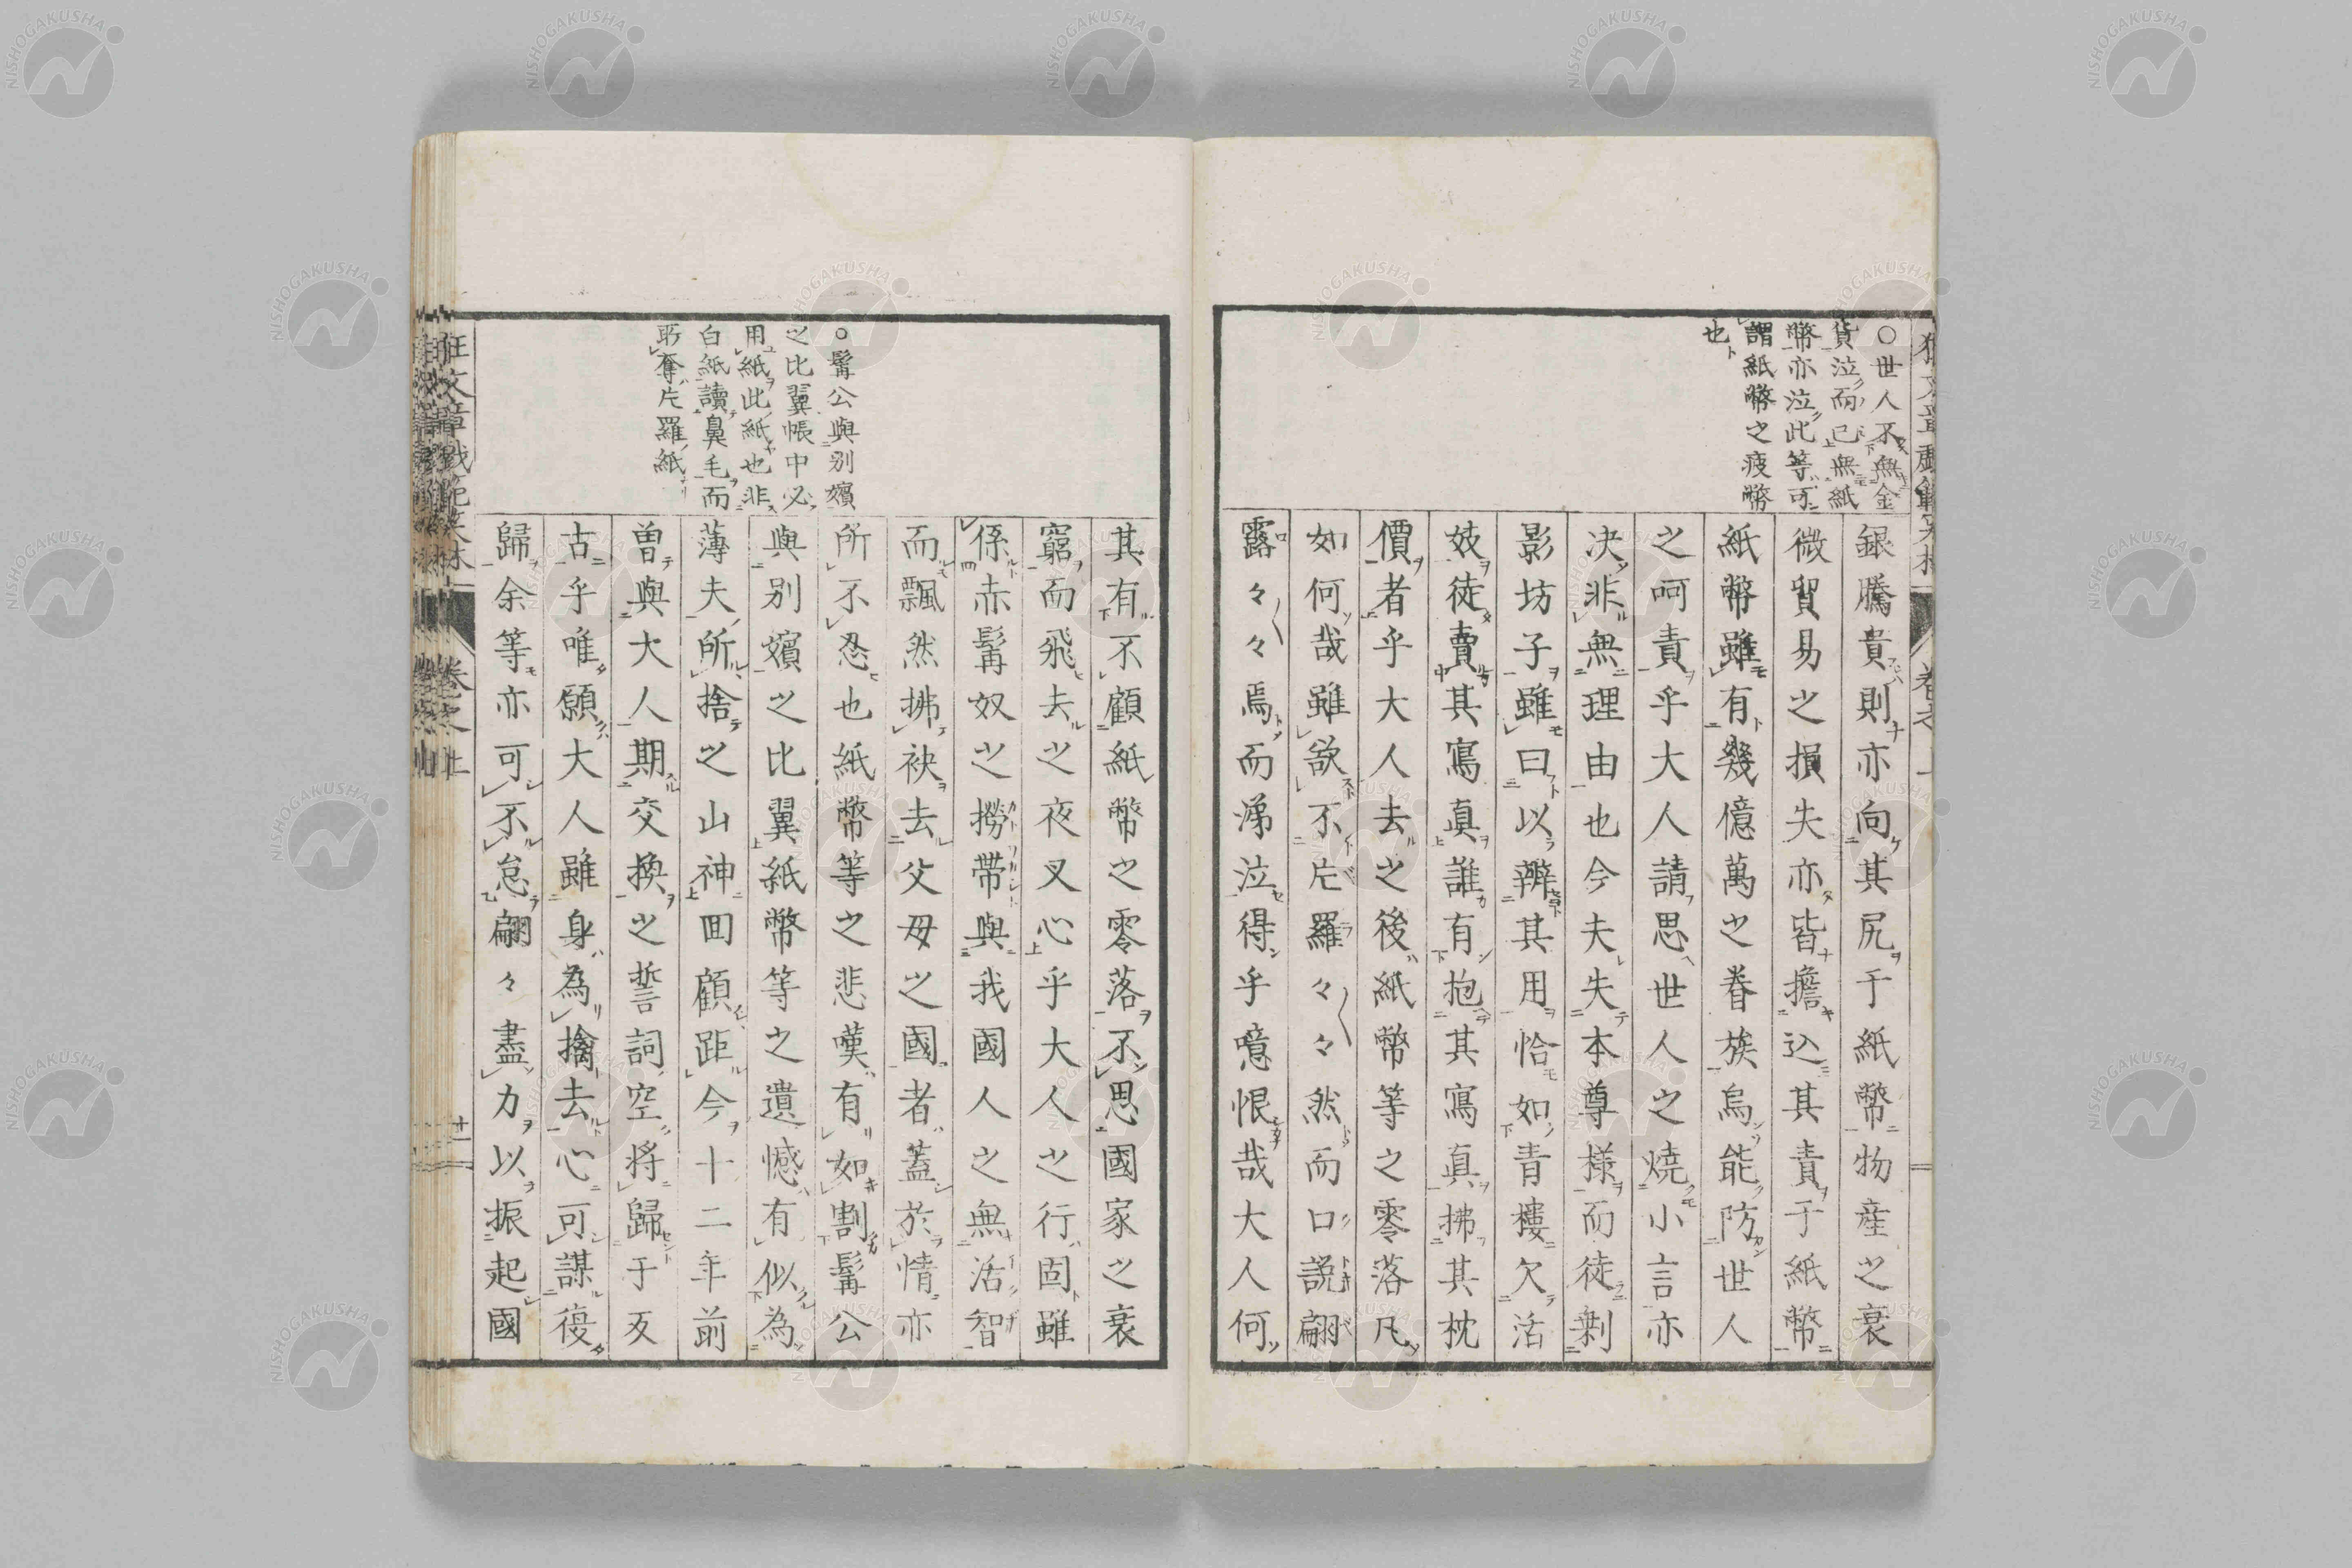 〇世人不無金
貨泣而已無紙
幣亦泣此等可
謂紙幣之疲幣
也
銀騰貴則亦向其尻于紙幣物産之衰
微貿易之損失亦皆擔込其責于紙幣
紙幣雖有幾億萬之眷族烏能防世人
之呵責乎大人請思世人之燒小言亦
决非無理由也今夫失本尊様而徒剝
影坊子雖曰以辨其用恰如青樓欠活
妓徒賣其寫真誰有抱其寫真拂其枕
價者乎大人去之後紙幣等之零落凡
如何哉雖欲不片羅々々然而口説翩
露々々焉而涕泣得乎噫恨哉大人何
〇髯公與別嬪
之比翼帳中必
用紙此紙也非
白紙讀鼻毛而
所奪片羅紙
其有不顧紙幣之零落不思國家之衰
窮而飛去之夜叉心乎大人之行固雖
係赤髯奴之撈帶與我國人之無活智
而飄然拂袂去父母之國者蓋於情亦
所不忍也紙幣等之悲嘆有如割髯公
與別嬪之比翼紙幣等之遺憾有似為
薄夫所捨之山神回顧距今十二年前
曽與大人期交換之誓詞空將歸于反
古乎唯願大人雖身為擒去心可謀復
歸余等亦可不怠翩々盡力以振起國
狂文章戯範笑林
卷之上
十一
NISHOGAKUSHA